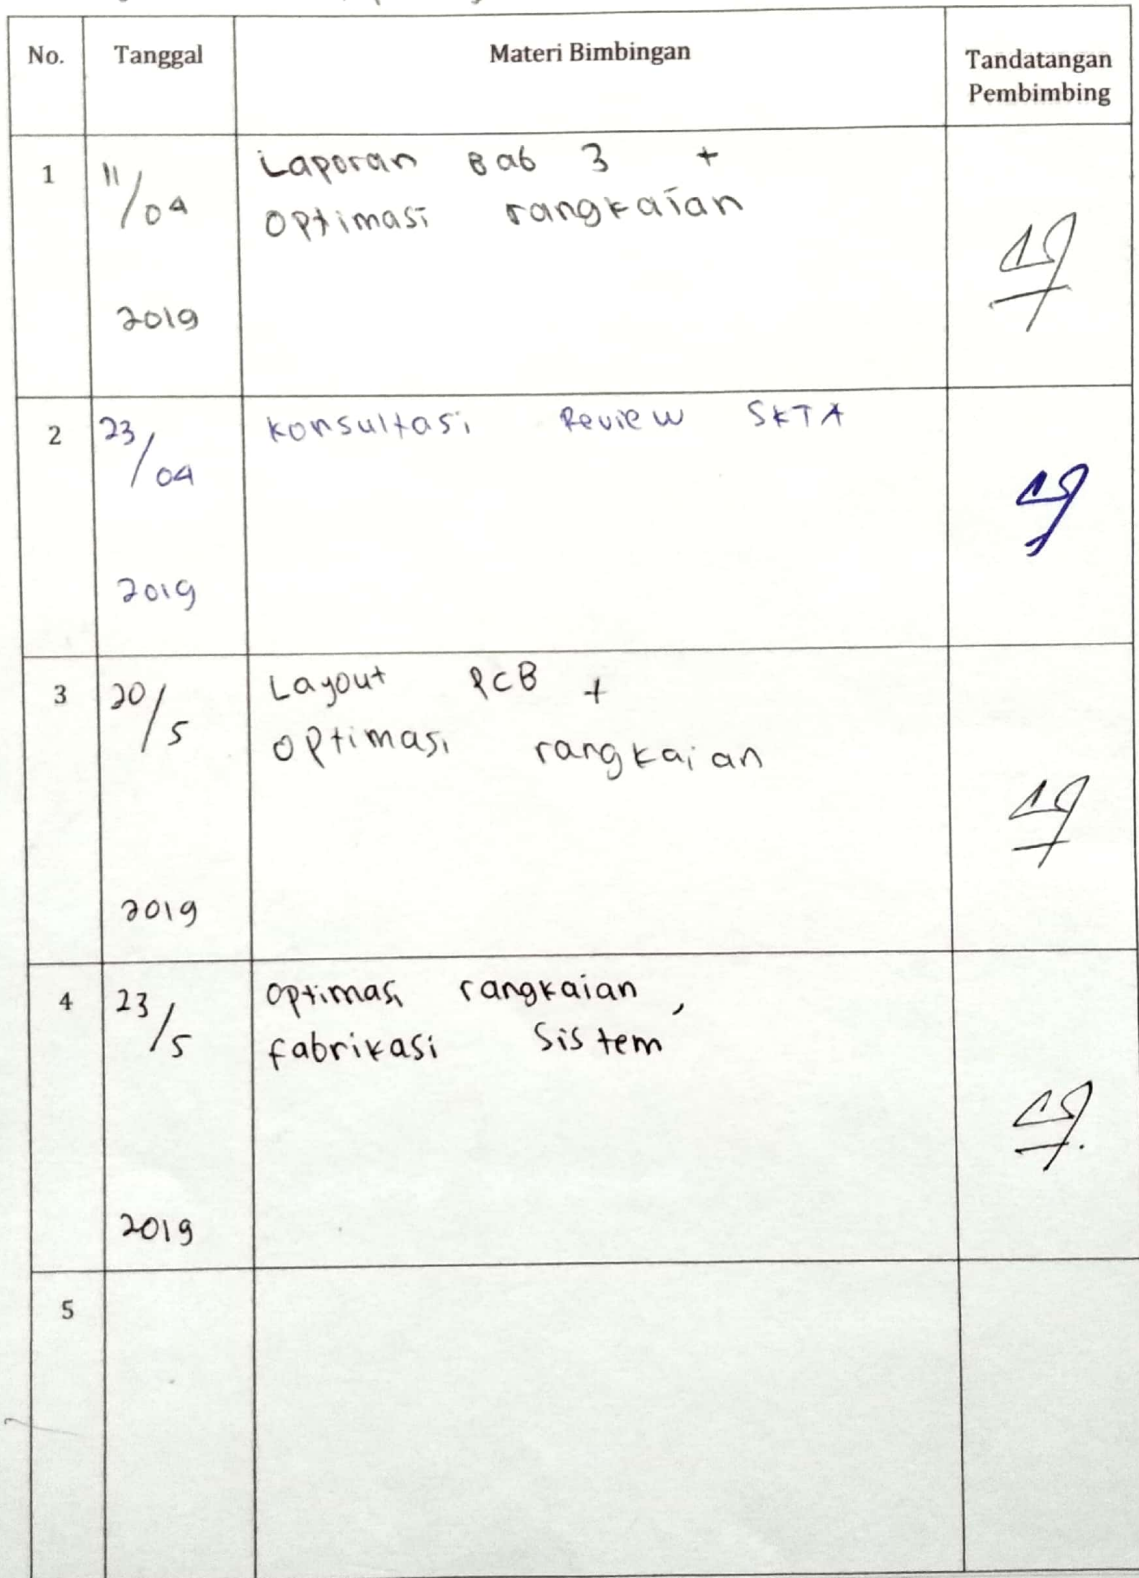 No. Tanggal Materi Bimbingan Tandatangan
Pembimbing
1 11/04 Laporan Bab 3 +
optimasi rangkaian
2019
2 23/04 konsultasi Review SKTA
2019
3 20/5 Layout PCB +
optimasi rangkaian
2019
4 23/5 optimasi rangkaian,
fabrikasi sistem
2019
5